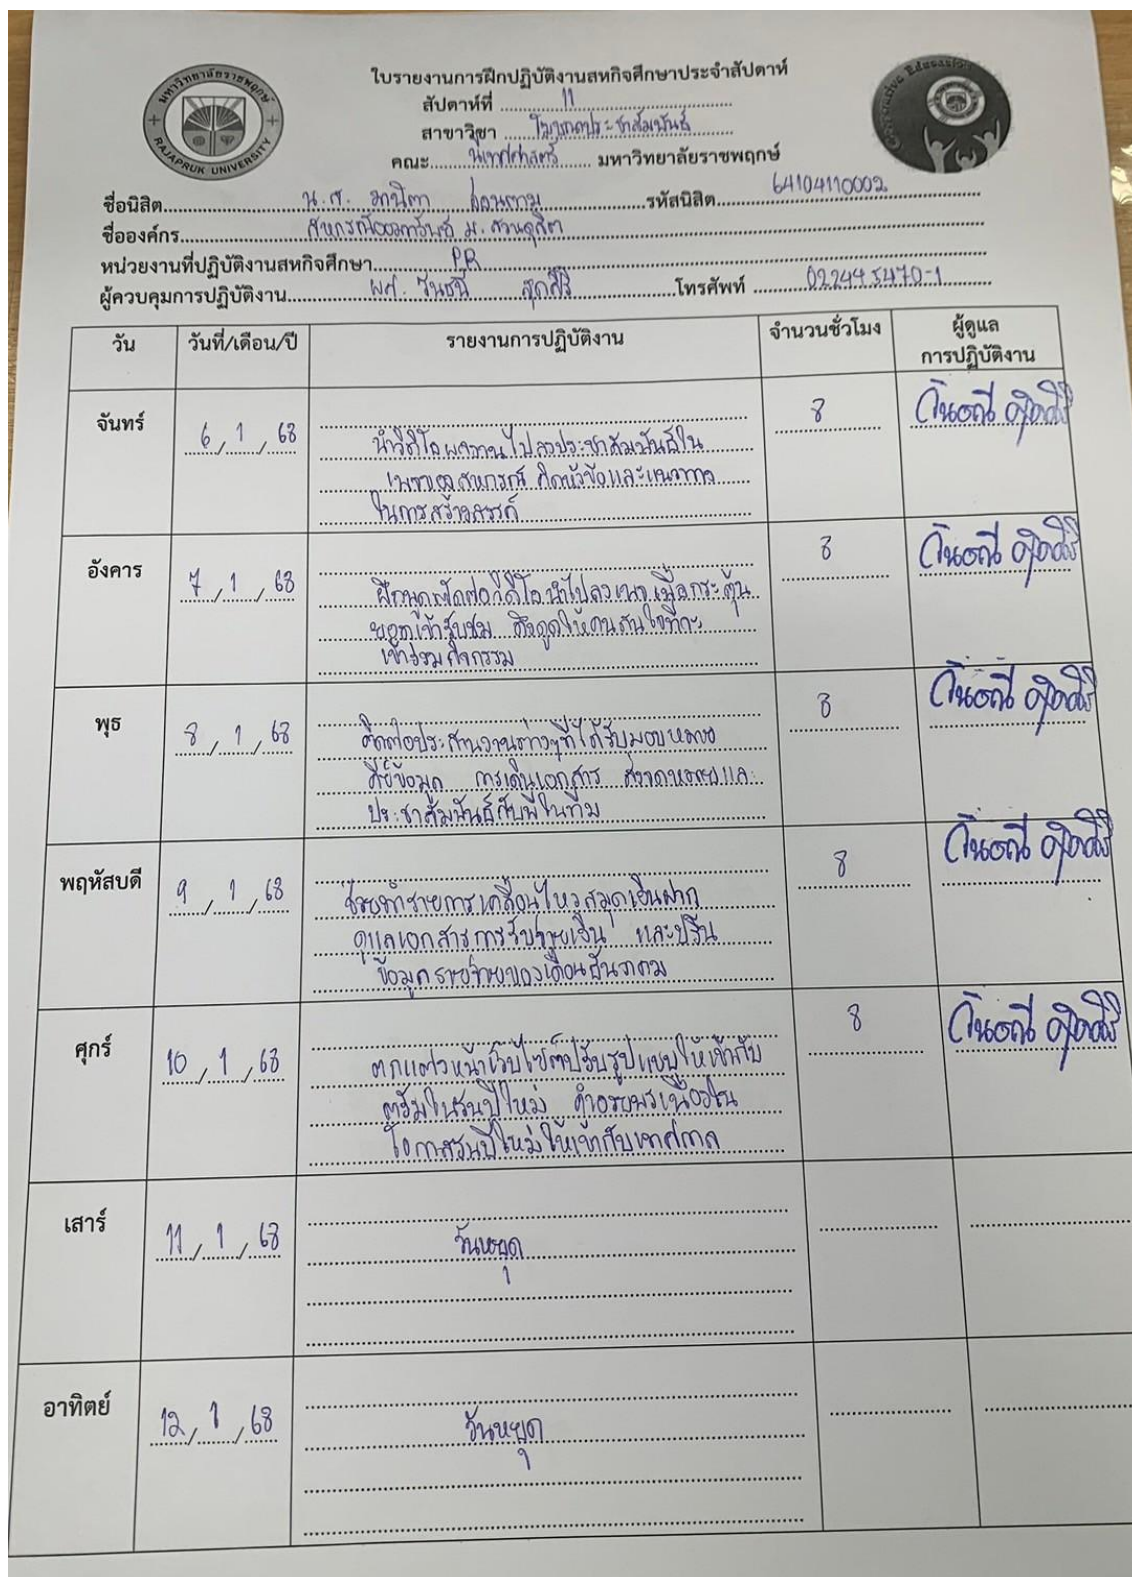 มหาวิทยาลัยราชพฤกษ์
RAJAPRUK UNIVERSITY
Cooperative Education
ใบรายงานการฝึกปฏิบัติงานสหกิจศึกษาประจำสัปดาห์
สัปดาห์ที่ 11
สาขาวิชา โฆษณาประชาสัมพันธ์
คณะ นิเทศศาสตร์ มหาวิทยาลัยราชพฤกษ์
ชื่อนิสิต น.ส. มานิตา รหัสนิสิต 64104110002
ชื่อองค์กร สหกรณ์ออมทรัพย์ ม. สวนดุสิต
หน่วยงานที่ปฏิบัติงานสหกิจศึกษา PR
ผู้ควบคุมการปฏิบัติงาน ผศ. โทรศัพท์ 022445470-1
วัน วันที่/เดือน/ปี รายงานการปฏิบัติงาน จำนวนชั่วโมง ผู้ดูแล
การปฏิบัติงาน
จันทร์ 6/1/68 นำวิดีโอผลงานไปลงประชาสัมพันธ์ใน 8
เพจของสหกรณ์ คิดหัวข้อและแนวทาง
ในการสร้างสรรค์
อังคาร 7/1/68 ฝึกพูดตัดต่อวิดีโอนำไปลงเพจเพื่อกระตุ้น 8
ยอดเข้ารับชม ดึงดูดให้คนสนใจที่จะ
เข้าร่วมกิจกรรม
พุธ 8/1/68 ติดต่อประสานงานต่างๆที่ได้รับมอบหมาย 8
คีย์ข้อมูล การเดินเอกสาร ส่งจดหมายและ
ประชาสัมพันธ์กับพี่ในทีม
พฤหัสบดี 9/1/68 ช่วยทำรายการเคลื่อนไหวสมุดเงินฝาก 8
ดูแลเอกสารการรับจ่ายเงิน และปริ้น
ข้อมูลรายจ่ายของเดือนธันวาคม
ศุกร์ 10/1/68 ตกแต่งหน้าเว็บไซต์ปรับรูปแบบให้เข้ากับ 8
ตรีมในวันปีใหม่ คำอวยพรเนื่องใน
โอกาสวันปีใหม่ให้เข้ากับเทศกาล
เสาร์ 11/1/68 วันหยุด
อาทิตย์ 12/1/68 วันหยุด